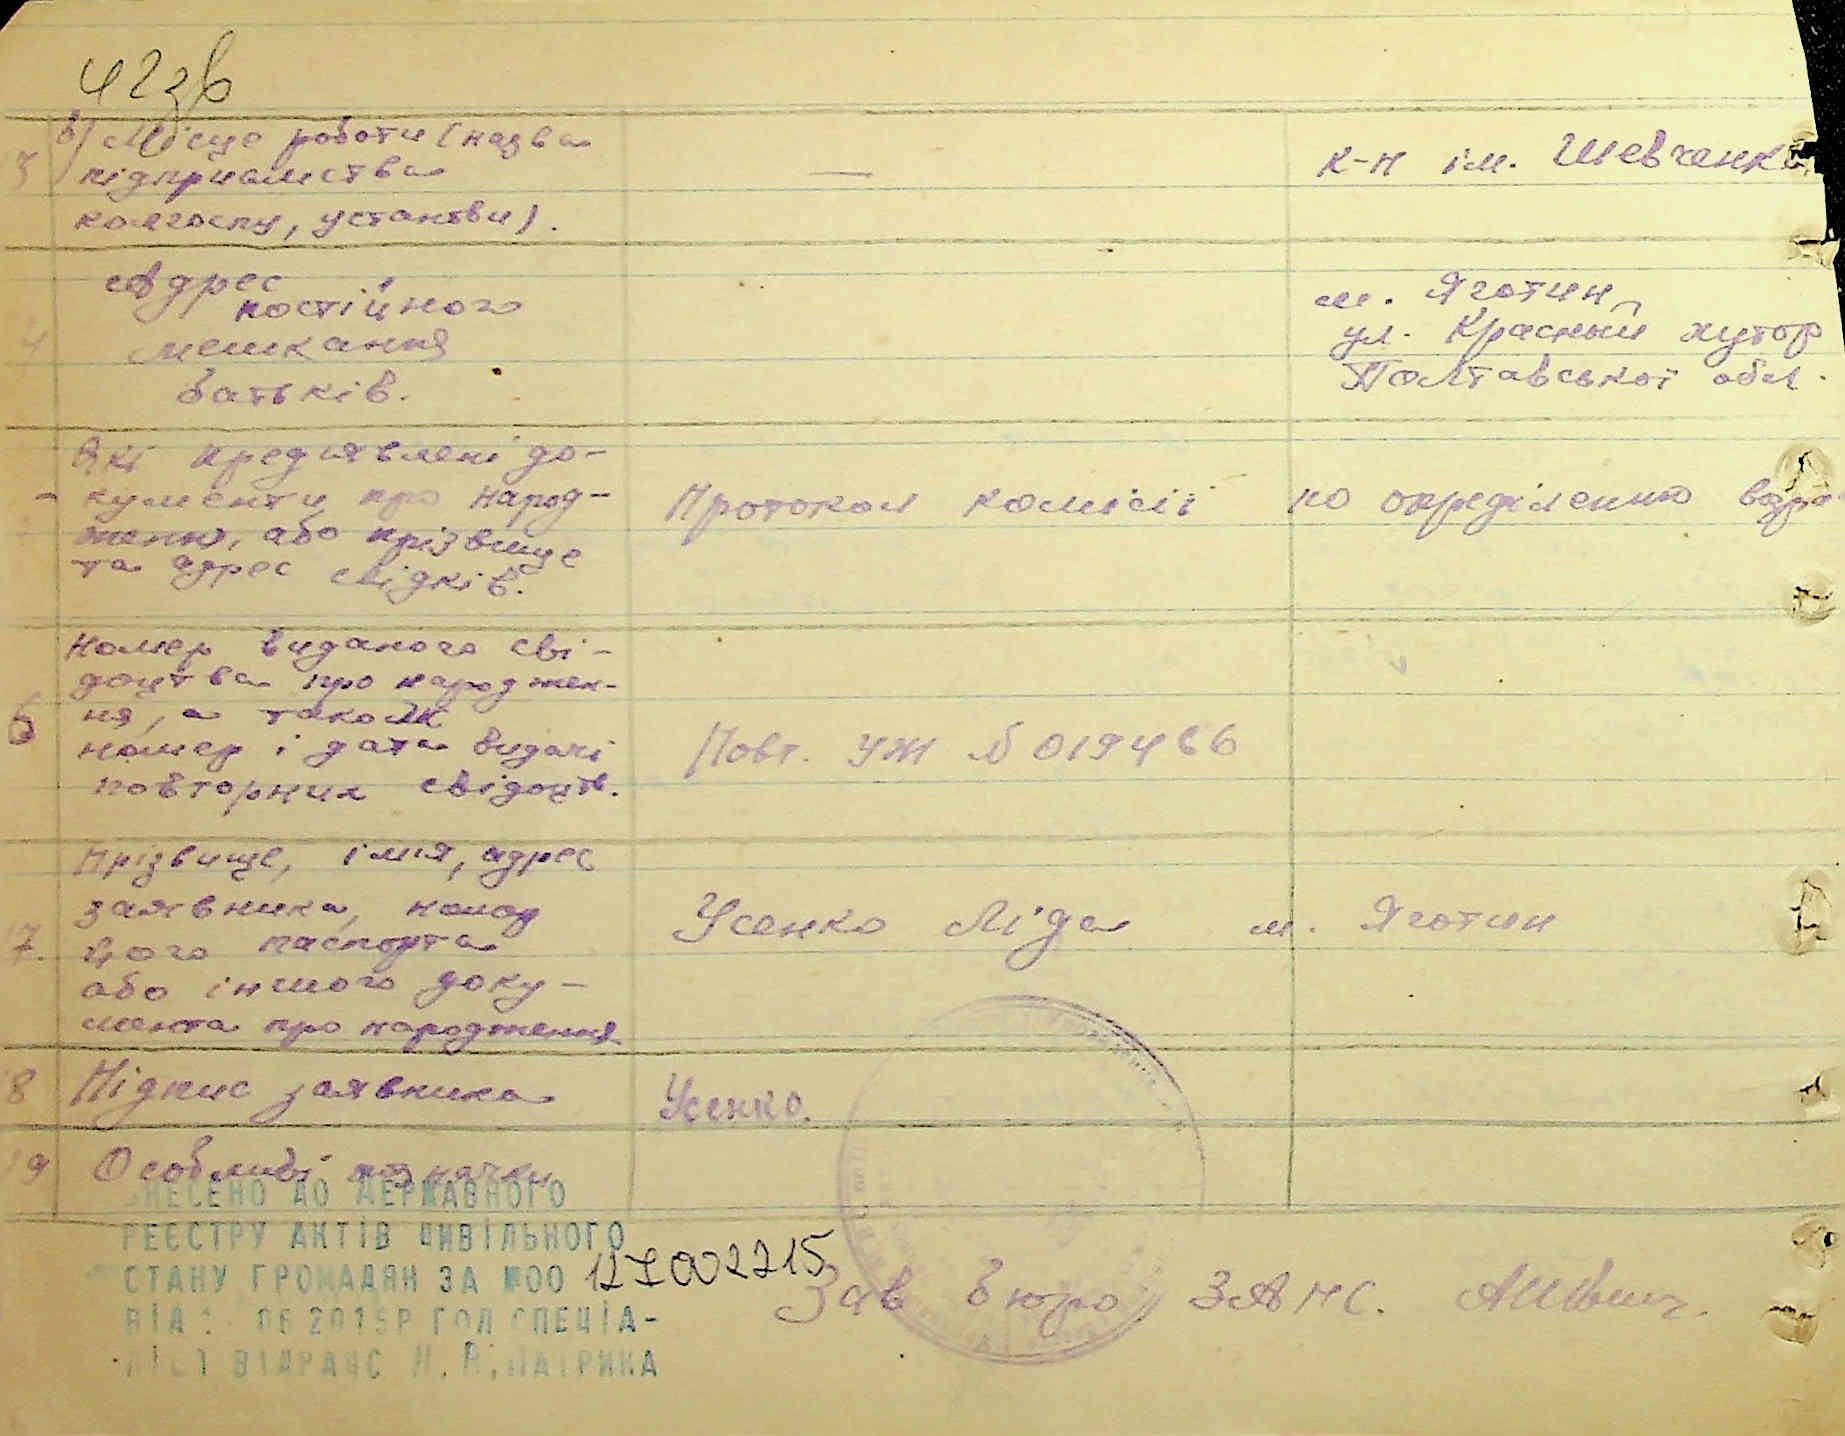 42зв
в) Місце роботи (назва
підприємства
колгоспу, установи).
—
к-п ім. Шевченка
3
Адрес
постійного
мешкання
батьків.
м. Яготин,
ул. Красный хутор
Полтавської обл.
4
Які предявлені до-
кументи про народ-
ження, або прізвище
та адрес свідків.
Протокол комісії по опреділенню возра
Номер виданого сві-
доцтва про народжен-
ня, а також
номер і дата видачі
повторних свідоцтв.
Повт. УЖ № 019466
6
Прізвище, імя, адрес
заявника, номер
його паспорта
або іншого доку-
мента про народження
Усенко Ліда м. Яготин
7.
8 Підпис заявника Усенко.
19 Особливі позначки
ВНЕСЕНО ДО ДЕРЖАВНОГО
РЕЄСТРУ АКТІВ ЦИВІЛЬНОГО
СТАНУ ГРОМАДЯН ЗА №00
ВІД 06 2015Р ГОЛ СПЕЦІА-
ЛІСТ ВІДРАЦС Н.В.ПАТРИКА
Зав бюро ЗАГС.